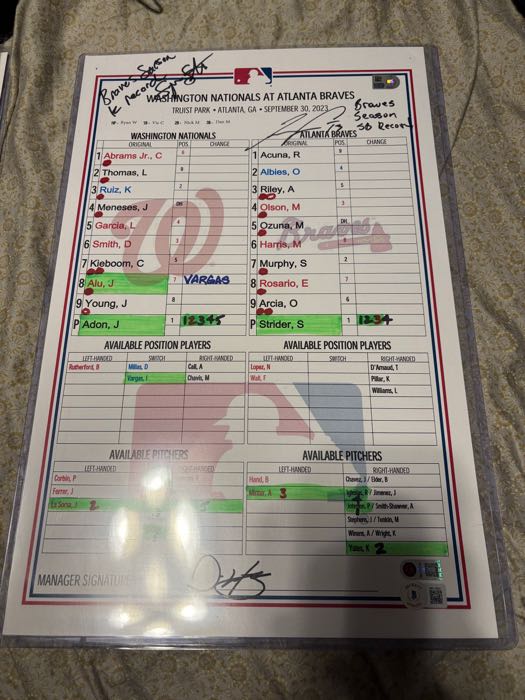 Braves Season
K record
WASHINGTON NATIONALS AT ATLANTA BRAVES
TRUIST PARK • ATLANTA, GA • SEPTEMBER 30, 2023
Braves
Season
SB Record
WASHINGTON NATIONALS
ORIGINAL POS. CHANGE
1 Abrams Jr., C 6
2 Thomas, L 9
3 Ruiz, K 2
4 Meneses, J DH
5 Garcia, L 4
6 Smith, D 3
7 Kieboom, C 5
8 Alu, J 7 VARGAS
9 Young, J 8
P Adon, J 1 12345
ATLANTA BRAVES
ORIGINAL POS. CHANGE
1 Acuna, R 9
2 Albies, O 4
3 Riley, A 5
4 Olson, M 3
5 Ozuna, M DH
6 Harris, M 8
7 Murphy, S 2
8 Rosario, E 7
9 Arcia, O 6
P Strider, S 1 1234
AVAILABLE POSITION PLAYERS
LEFT-HANDED SWITCH RIGHT-HANDED
Rutherford, B Millas, D Call, A
Vargas, I Chavis, M
AVAILABLE POSITION PLAYERS
LEFT-HANDED SWITCH RIGHT-HANDED
Lopez, N D'Arnaud, T
Wall, F Pillar, K
Williams, L
AVAILABLE PITCHERS
LEFT-HANDED RIGHT-HANDED
Corbin, P
Ferrer, J
La Sorsa, J 2
AVAILABLE PITCHERS
LEFT-HANDED RIGHT-HANDED
Hand, B Chavez, J / Elder, B
Minter, A 3 Iglesias, R / Jimenez, J
Johnson, P / Smith-Shawver, A
Stephens, J / Tonkin, M
Winans, A / Wright, K
Yates, K 2
MANAGER SIGNATURE